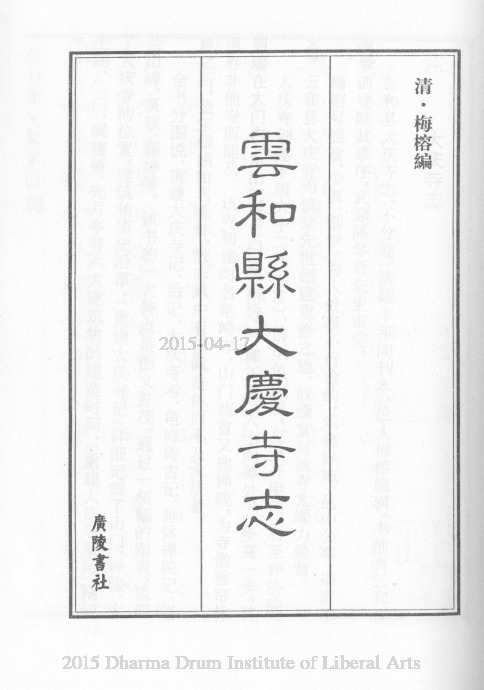 清·梅榕編
雲和縣大慶寺志
廣陵書社
2015-04-17
2015 Dharma Drum Institute of Liberal Arts